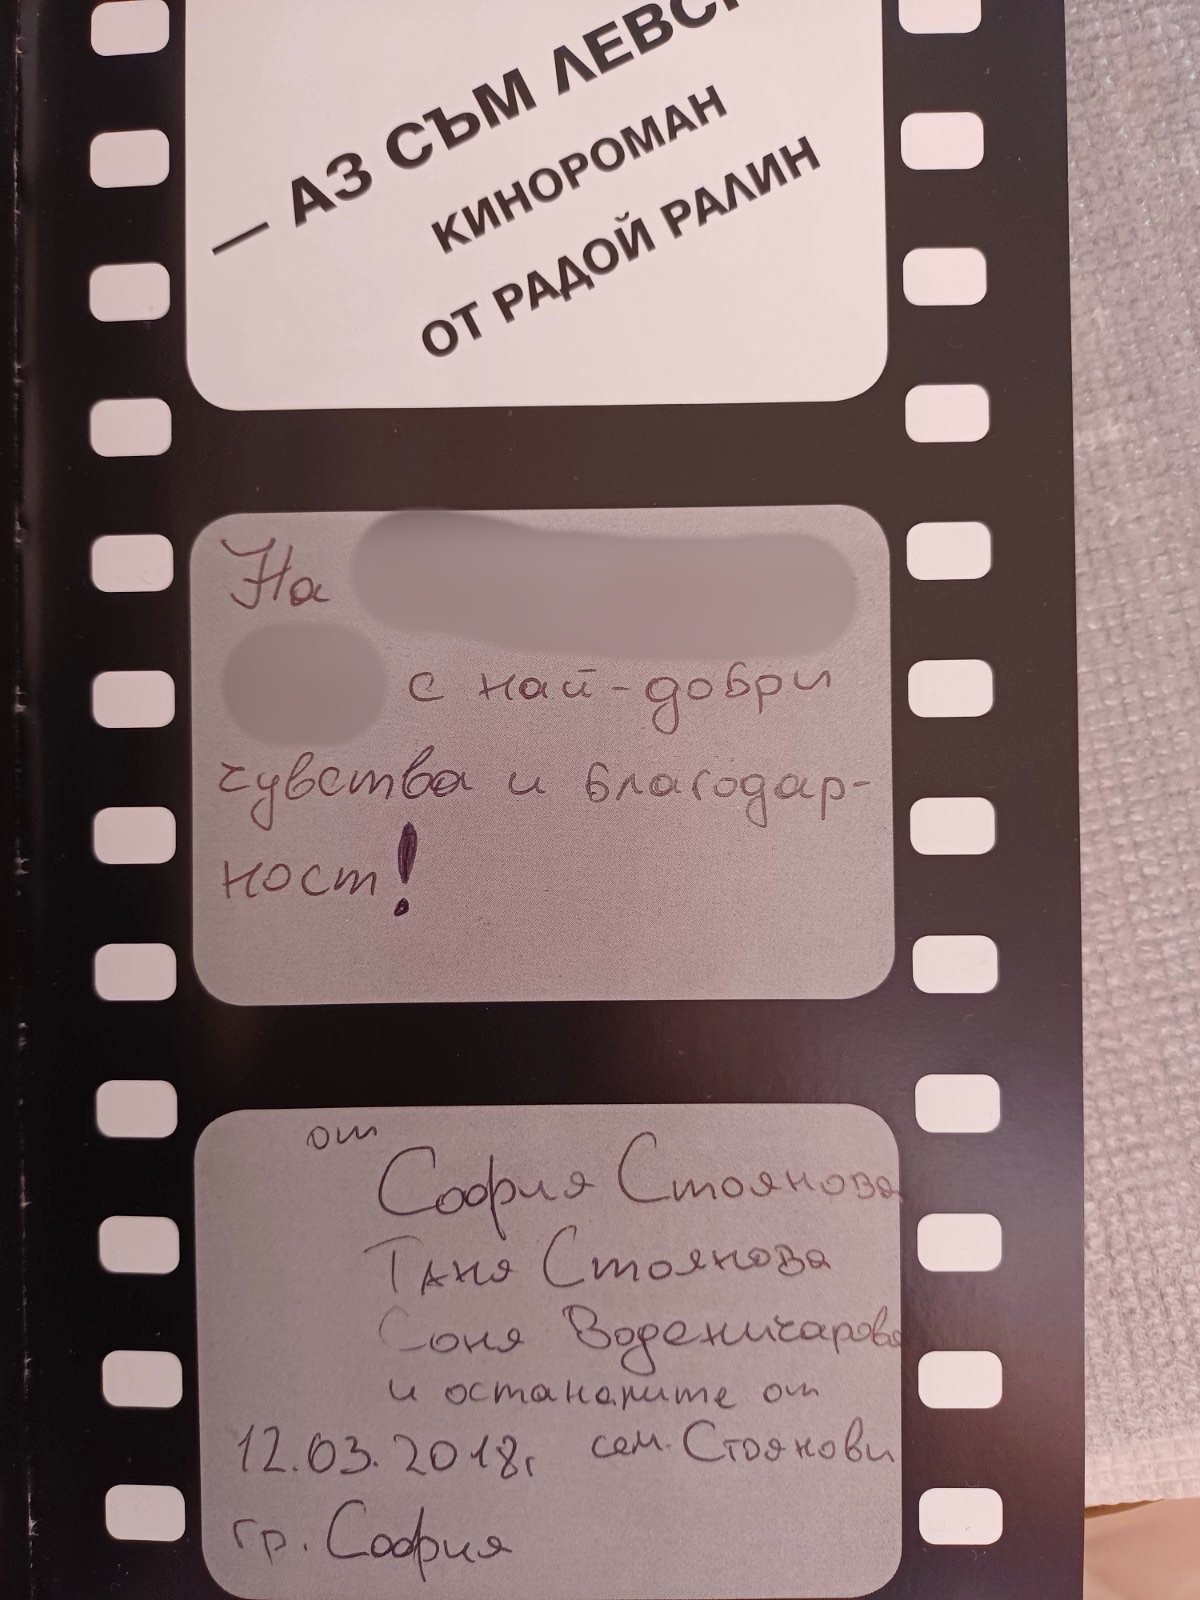 — АЗ СЪМ ЛЕВСК
КИНОРОМАН
ОТ РАДОЙ РАЛИН
На
с най-добри
чувства и благодар-
ност!
от
София Стоянова
Таня Стоянова
Соня Воденичарова
и останалите от
12.03.2018г сем. Стоянови
гр. София